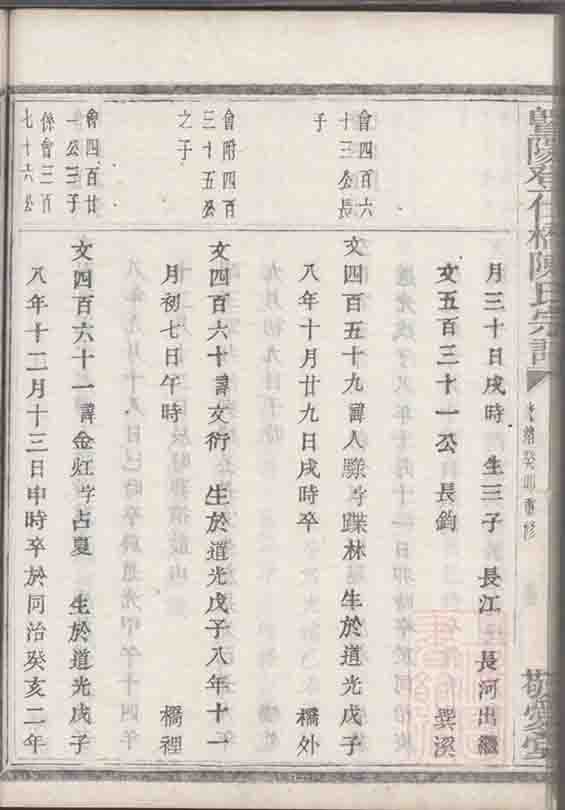 暨陽登仕橋陳氏宗譜
光緒癸卯重修
敬愛堂
月三十日戌時 生三子 長江 長河出繼
文五百三十一公 長鈞 巽溪
會四百六
十三公長
子
文四百五十九諱人驥字蹀林 生於道光戊子
八年十月廿九日戌時卒 橋外
會附四百
三十五公
之子
文四百六十諱文衍 生於道光戊子八年十一
月初七日午時 橋裡
會四百廿
一公三子
係會三百
七十六公
文四百六十一諱金灴字占夏 生於道光戊子
八年十二月十三日申時卒於同治癸亥二年